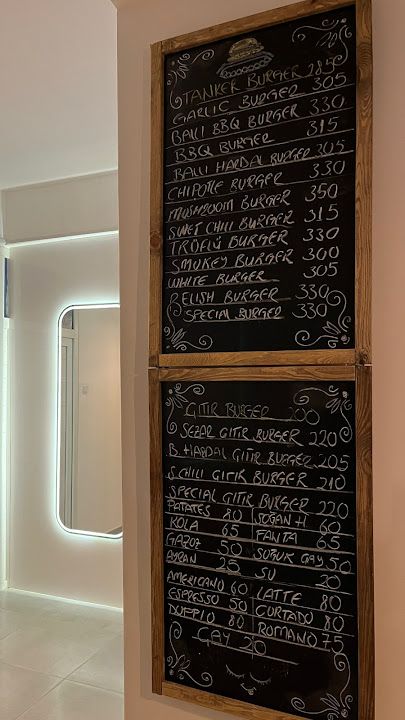 TANKER BURGER 285
GARLIC BURGER 305
BALLI BBQ BURGER 330
BBQ BURGER 315
BALLI HARDAL BURGER 305
CHIPOTLE BURGER 330
MUSHROOM BURGER 350
SWEET CHILI BURGER 315
TROFLÜ BURGER 330
SMOKEY BURGER 300
WHITE BURGER 305
RELISH BURGER 330
SPECIAL BURGER 330
GITIR BURGER 200
SEZAR GITIR BURGER 220
B. HARDAL GITIR BURGER 205
S.CHILI GITIR BURGER 210
SPECIAL GITIR BURGER 220
PATATES 80 SOĞAN H 60
KOLA 65 FANTA 65
GAZOZ 50 SOĞUK ÇAY 50
AYRAN 25 SU 20
AMERICANO 60 LATTE 80
ESPRESSO 50 CURTADO 80
DOPPIO 80 ROMANO 75
ÇAY 20